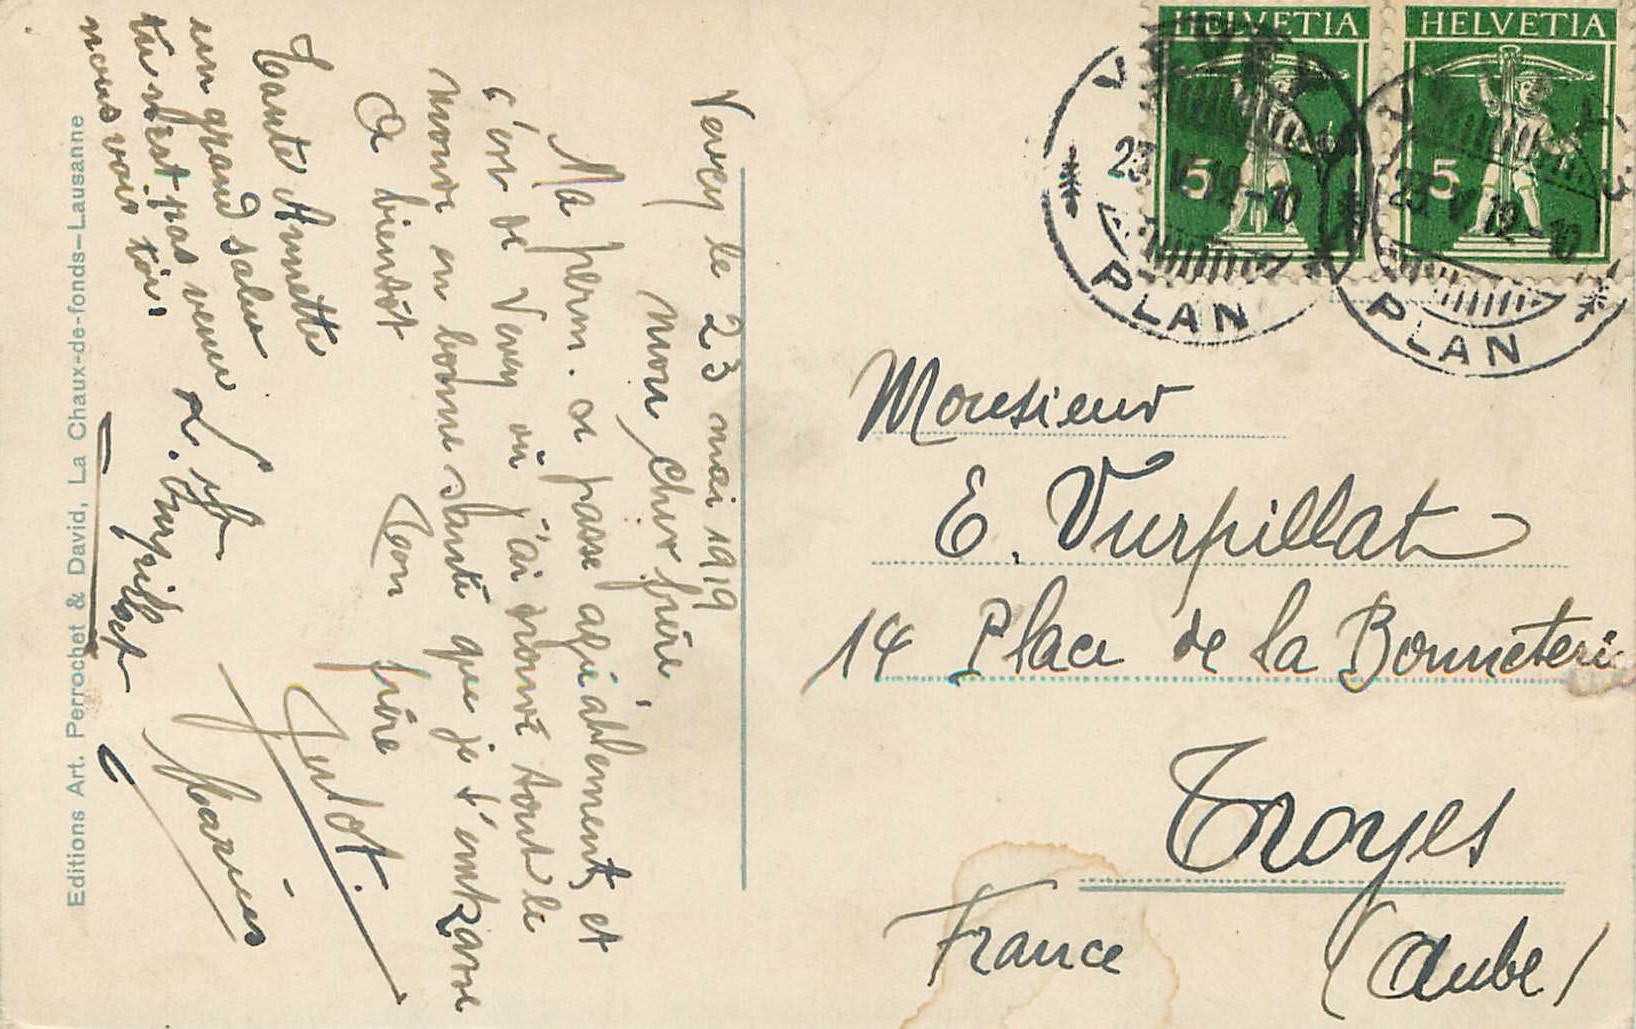 Vevey le 23 mai 1919
Mon cher frère,
Ma perm. se passe agréablement, et
c'est de Vevey où j'ai trouvé tout le
monde en bonne santé que je t'embrasse
A bientôt
Ton frère
Julot.
Tante Annette
un grand salut
tu n'est pas venu
nous voir toi.
L. Vurpillat
Marius
Editions Art. Perrochet & David, La Chaux-de-fonds-Lausanne
HELVETIA
5
HELVETIA
5
VEVEY
23.V.19-10
PLAN
VEVEY
23.V.19-10
PLAN
Monsieur
E. Vurpillat
14 Place de la Bonneteri
Troyes
(Aube)
France